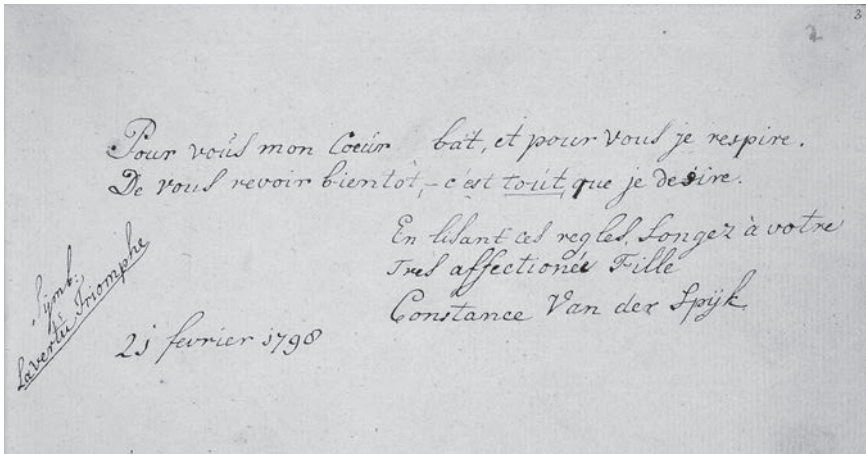 3
2
Pour vous mon Coeur bat, et pour vous je respire.
De vous revoir bientôt, - c'est tout, que je desire.
En lisant ces regles, Songez à votre
Tres affectionée Fille
Constance Van der Spÿk
Sÿmb:
La vertu Triomphe
21 fevrier 1798